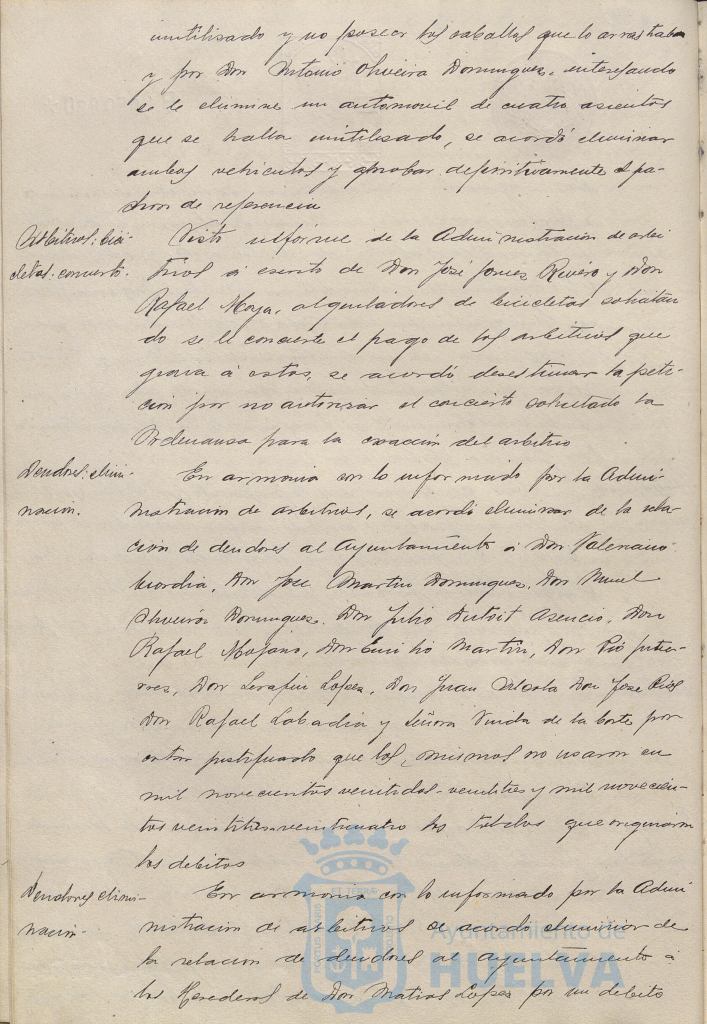 inutilisado y no poseer los caballos que lo arrastraban
y por Don Antonio Oliveira Dominguez, interesando
se le elimine un automovil de cuatro asientos
que se halla inutilisado, se acordó eliminar
ambos vehiculos y aprobar definitivamente el pa-
dron de referencia
Arbitrios: bici-
cletas: concierto.
Visto informe de la Administración de arbi
trios á escrito de Don José Gomez Rivero y Don
Rafael Moya, alquiladores de bicicletas solicitan
do se le concierte el pago de los arbitrios que
grava á estas, se acordó desestimar la peti-
ción por no autorizar el concierto solicitado la
Ordenanza para la exacción del arbitrio
Deudores: elimi-
nación.
En armonia con lo informado por la Admi-
nistracion de arbitrios, se acordó eliminar de la rela-
ción de deudores al Ayuntamiento á Don Valeriano
Don Jose Martin Dominguez, Don
Dominguez, Don Julio Asencio, Don
Rafael Don Emilio Martin, Don Pió Gutie-
rres, Don Serafin Lopez, Don Juan Don Jose Rios
Don Rafael Labadia y Señora Viuda de la Corte por
estar justificado que los mismos no usaron en
mil novecientos veintidos-veintitres y mil novecien-
tos veintitres-veinticuatro los toldos que originaron
los debitos
Deudores elimi-
nación.
En armonia con lo informado por la Admi
nistracion de arbitrios se acordó eliminar de
la relacion de deudores al Ayuntamiento á
los Herederos de Don Matias Lopez por un debito
Ayuntamiento de
HUELVA